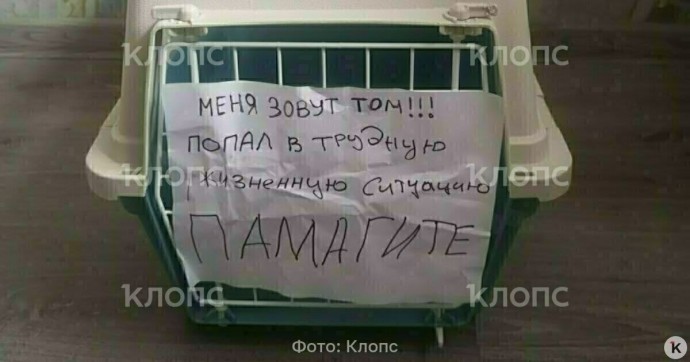 КЛОПС КЛОПС
МЕНЯ ЗОВУТ ТОМ!!!
ПОПАЛ В ТРУДНУЮ
КЛОПС КЛОПС
ЖИЗНЕННУЮ СИТУАЦИЮ
ПАМАГИТЕ
КЛОПС КЛОПС
Фото: Клопс
К